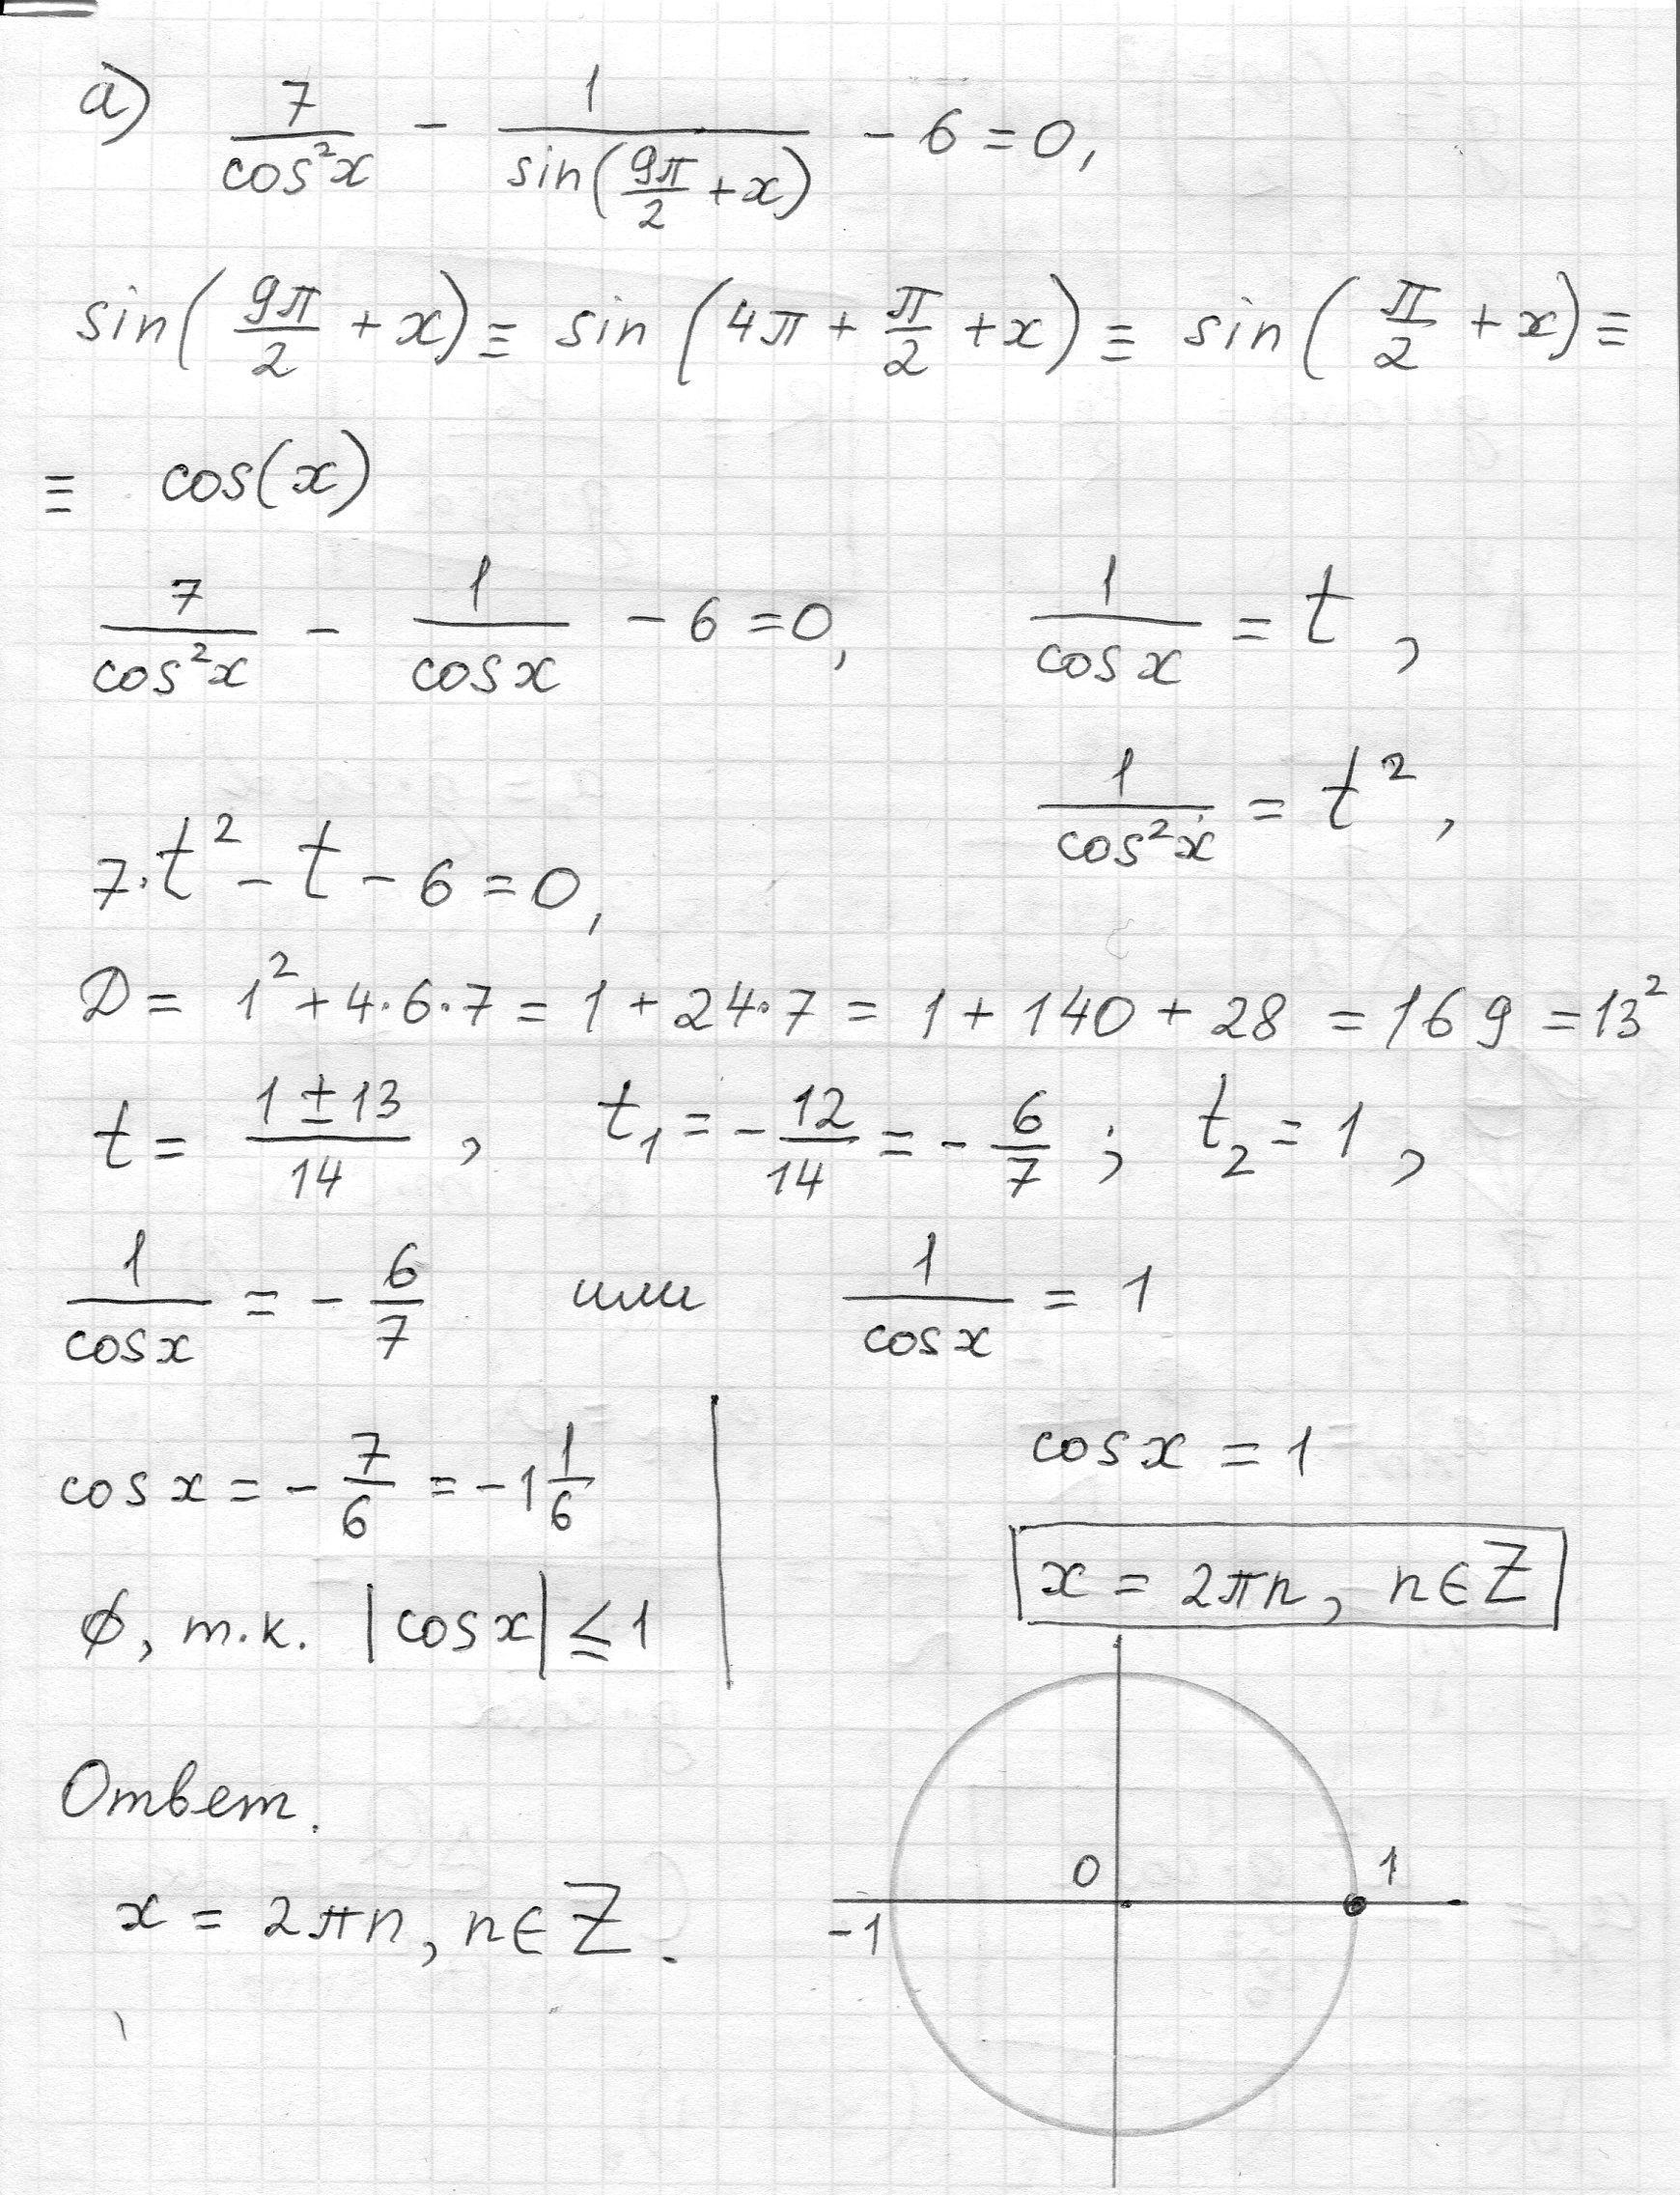 а) 7/cos²x - 1/sin(9π/2 + x) - 6 = 0,
sin(9π/2 + x) ≡ sin(4π + π/2 + x) ≡ sin(π/2 + x) ≡
≡ cos(x)
7/cos²x - 1/cosx - 6 = 0, 1/cosx = t,
1/cos²x = t²,
7·t² - t - 6 = 0,
D = 1² + 4·6·7 = 1 + 24·7 = 1 + 140 + 28 = 169 = 13²
t = (1 ± 13)/14, t₁ = -12/14 = -6/7; t₂ = 1,
1/cosx = -6/7 или 1/cosx = 1
cosx = -7/6 = -1 1/6
∅, т.к. |cosx| ≤ 1
cosx = 1
x = 2πn, n∈Z
Ответ.
x = 2πn, n∈Z.
0 1
-1